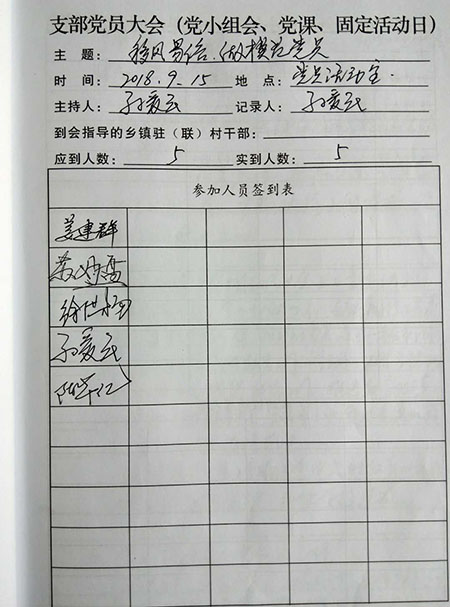 支部党员大会（党小组会、党课、固定活动日）
主 题： 移风易俗、做模范党员
时 间： 2018.9.15 地 点： 党员活动室.
主持人： 孙爱云 记录人： 孙爱云
到会指导的乡镇驻（联）村干部：
应到人数： 5 实到人数： 5
参加人员签到表
姜建群
孙爱云